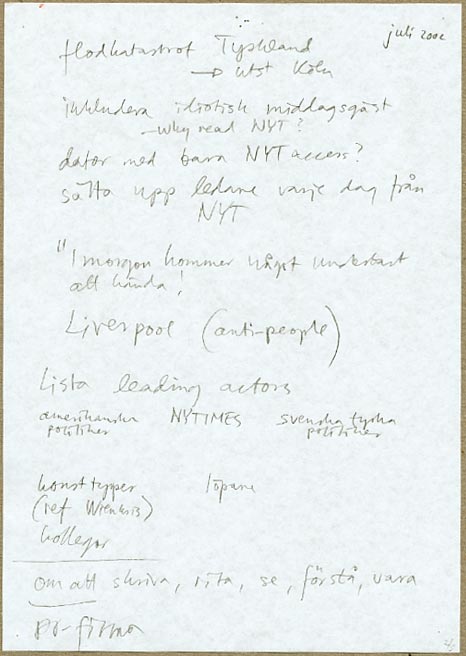 juli 2002
flodkatastrof Tyskland
→ utst Köln
inkludera idiotisk middagsgäst
- why read NYT?
dator med bara NYT access?
sätta upp ledare varje dag från
NYT
"I morgon kommer något underbart
att hända!
Liverpool (anti-people)
Lista leading actors
amerikanska politiker NYTIMES svenska tyska politiker
konsttyper löpare
(ref
kollegor
om att skriva, rita, se, förstå, vara
PR-firma